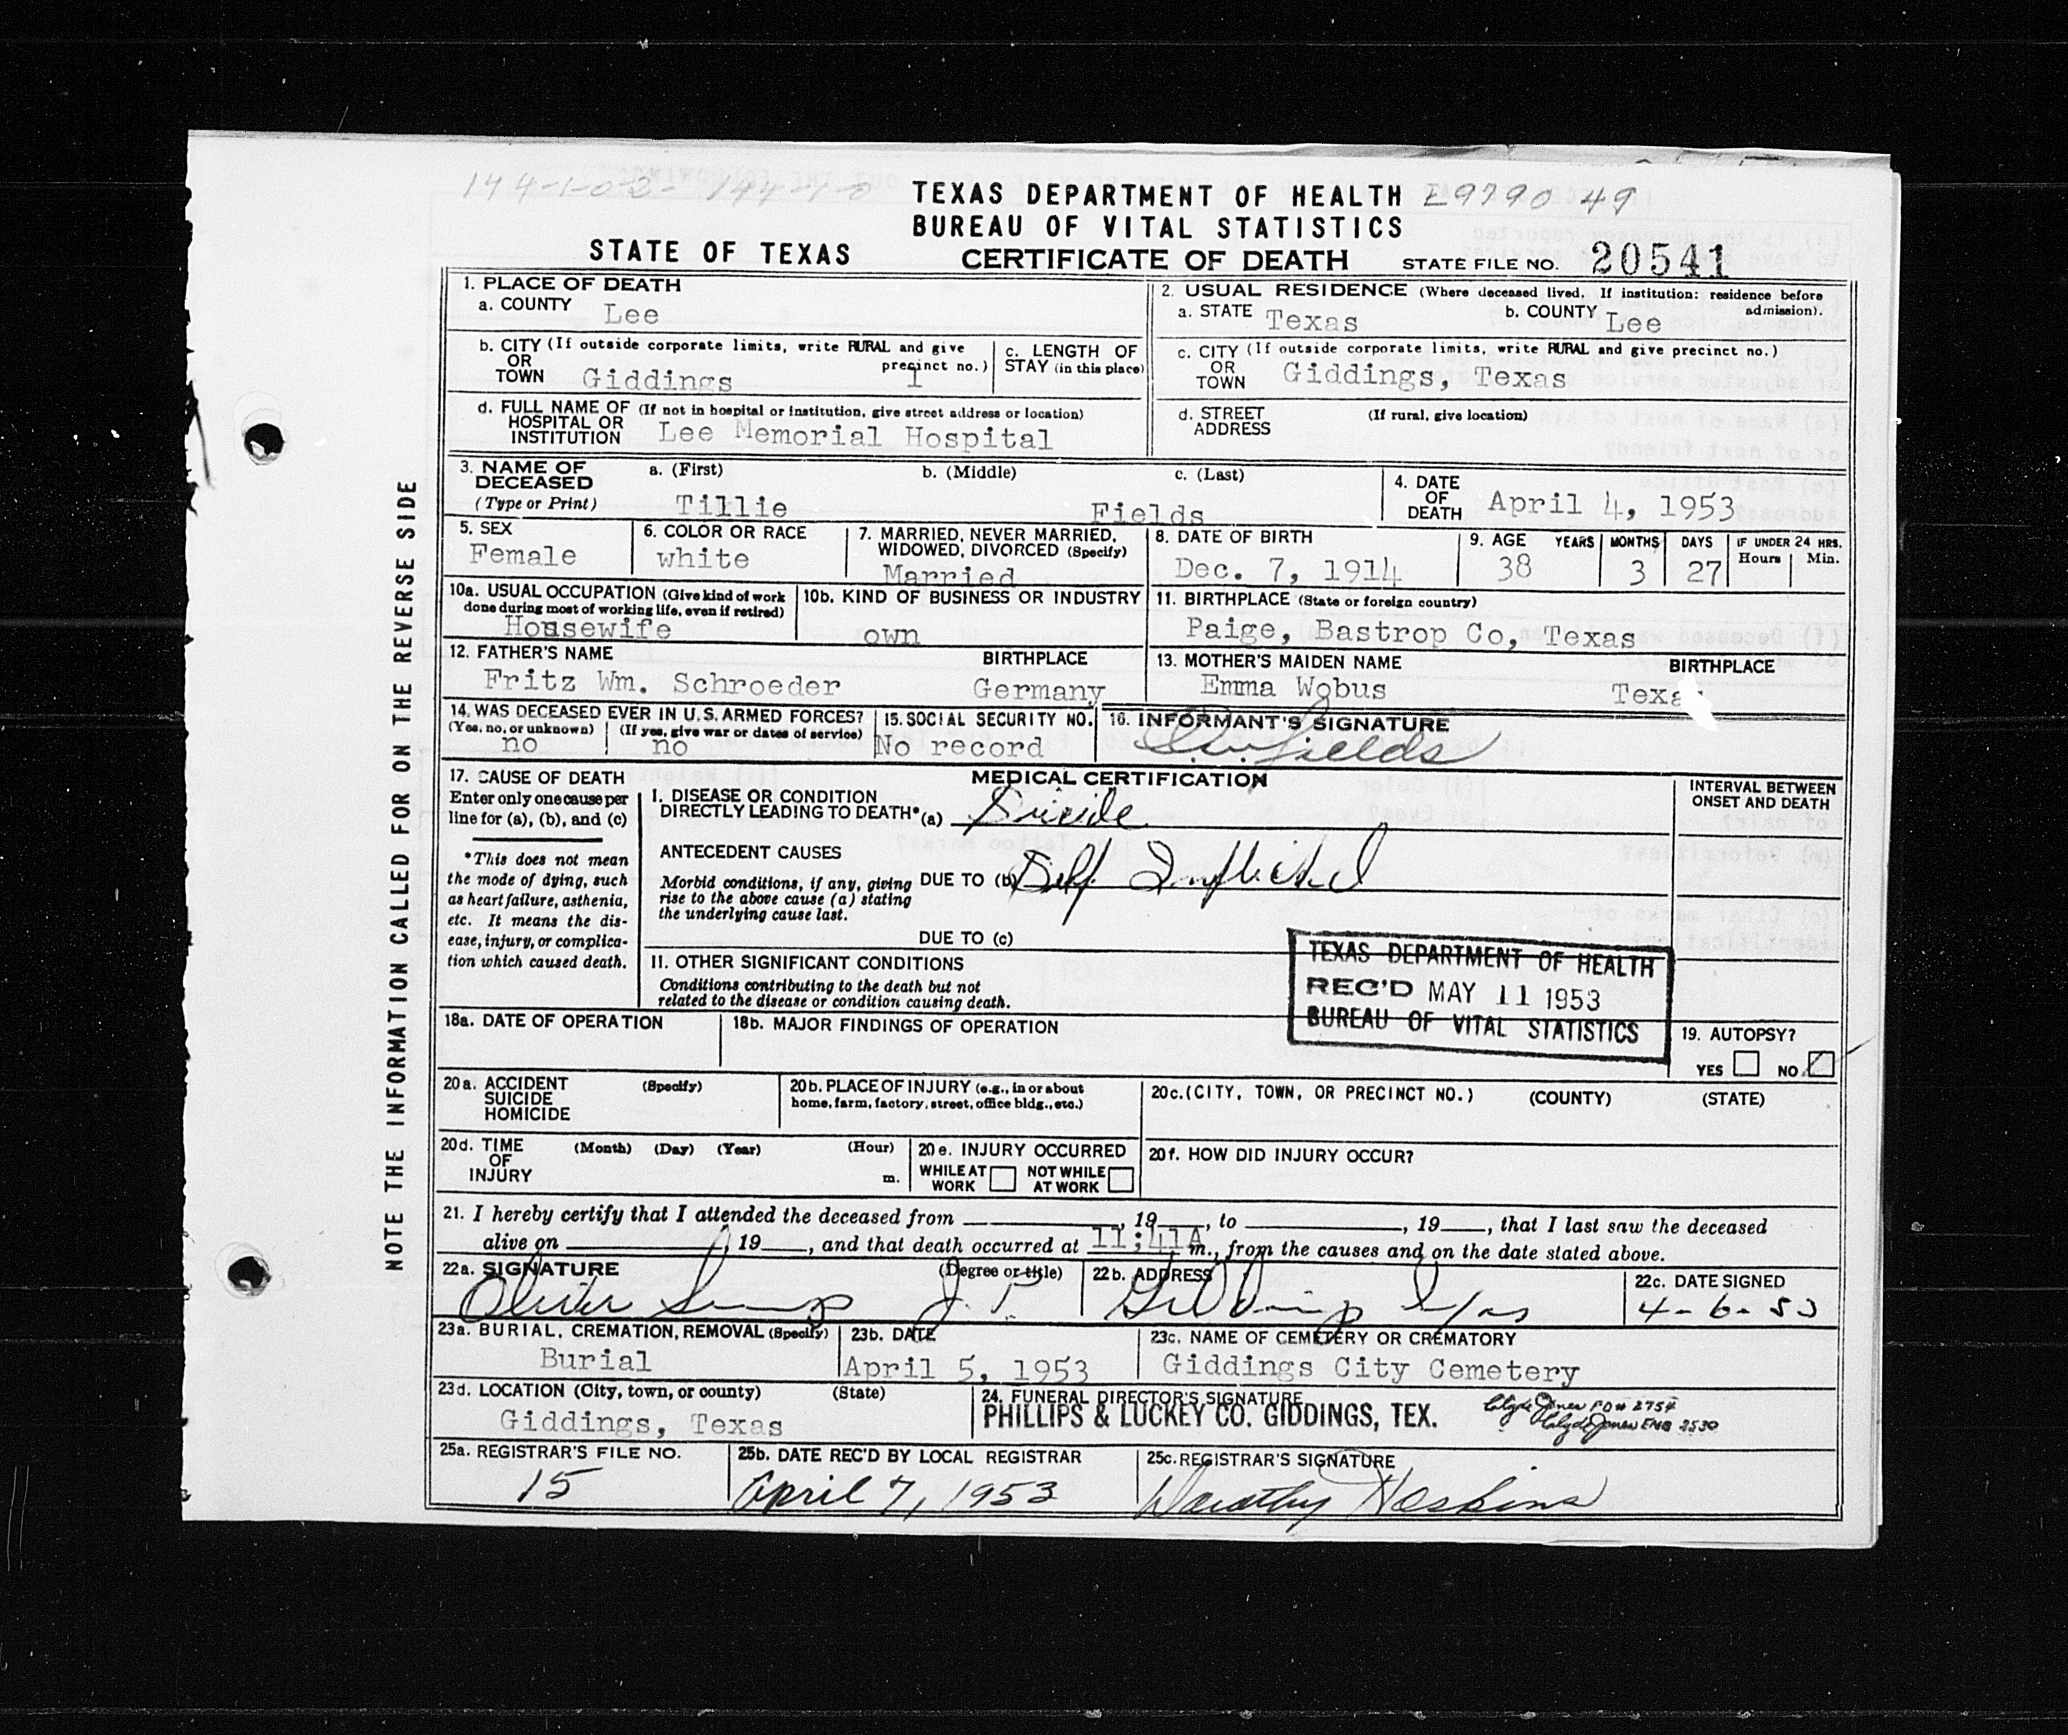 TEXAS DEPARTMENT OF HEALTH
BUREAU OF VITAL STATISTICS
STATE OF TEXAS CERTIFICATE OF DEATH STATE FILE NO. 20541
NOTE THE INFORMATION CALLED FOR ON THE REVERSE SIDE
1. PLACE OF DEATH
a. COUNTY Lee
2. USUAL RESIDENCE (Where deceased lived. If institution: residence before admission).
a. STATE Texas b. COUNTY Lee
b. CITY (If outside corporate limits, write RURAL and give precinct no.)
OR
TOWN Giddings 1
c. LENGTH OF
STAY (in this place)
c. CITY (If outside corporate limits, write RURAL and give precinct no.)
OR
TOWN Giddings, Texas
d. FULL NAME OF (If not in hospital or institution, give street address or location)
HOSPITAL OR
INSTITUTION Lee Memorial Hospital
d. STREET (If rural, give location)
ADDRESS
3. NAME OF a. (First) b. (Middle) c. (Last)
DECEASED
(Type or Print) Tillie Fields
4. DATE
OF
DEATH April 4, 1953
5. SEX
Female
6. COLOR OR RACE
white
7. MARRIED, NEVER MARRIED,
WIDOWED, DIVORCED (Specify)
Married
8. DATE OF BIRTH
Dec. 7, 1914
9. AGE YEARS MONTHS DAYS IF UNDER 24 HRS.
Hours Min.
38 3 27
10a. USUAL OCCUPATION (Give kind of work
done during most of working life, even if retired)
Housewife
10b. KIND OF BUSINESS OR INDUSTRY
own
11. BIRTHPLACE (State or foreign country)
Paige, Bastrop Co, Texas
12. FATHER'S NAME BIRTHPLACE
Fritz Wm. Schroeder Germany
13. MOTHER'S MAIDEN NAME BIRTHPLACE
Emma Wobus Texas
14. WAS DECEASED EVER IN U.S. ARMED FORCES?
(Yes, no, or unknown) (If yes, give war or dates of service)
no no
15. SOCIAL SECURITY NO.
No record
16. INFORMANT'S SIGNATURE
Fields
17. CAUSE OF DEATH
Enter only one cause per
line for (a), (b), and (c)
*This does not mean
the mode of dying, such
as heart failure, asthenia,
etc. It means the dis-
ease, injury, or complica-
tion which caused death.
MEDICAL CERTIFICATION
I. DISEASE OR CONDITION
DIRECTLY LEADING TO DEATH* (a) Suicide
ANTECEDENT CAUSES
Morbid conditions, if any, giving DUE TO (b) Self Inflicted
rise to the above cause (a) stating
the underlying cause last.
DUE TO (c)
II. OTHER SIGNIFICANT CONDITIONS
Conditions contributing to the death but not
related to the disease or condition causing death.
INTERVAL BETWEEN
ONSET AND DEATH
TEXAS DEPARTMENT OF HEALTH
REC'D MAY 11 1953
BUREAU OF VITAL STATISTICS
18a. DATE OF OPERATION
18b. MAJOR FINDINGS OF OPERATION
19. AUTOPSY?
YES NO
20a. ACCIDENT (Specify)
SUICIDE
HOMICIDE
20b. PLACE OF INJURY (e.g., in or about
home, farm, factory, street, office bldg., etc.)
20c. (CITY, TOWN, OR PRECINCT NO.) (COUNTY) (STATE)
20d. TIME (Month) (Day) (Year) (Hour)
OF
INJURY m.
20e. INJURY OCCURRED
WHILE AT NOT WHILE
WORK AT WORK
20f. HOW DID INJURY OCCUR?
21. I hereby certify that I attended the deceased from , 19 , to , 19 , that I last saw the deceased
alive on , 19 , and that death occurred at 11:41A m., from the causes and on the date stated above.
22a. SIGNATURE (Degree or title)
J. P.
22b. ADDRESS
Giddings Texas
22c. DATE SIGNED
4-6-53
23a. BURIAL, CREMATION, REMOVAL (Specify)
Burial
23b. DATE
April 5, 1953
23c. NAME OF CEMETERY OR CREMATORY
Giddings City Cemetery
23d. LOCATION (City, town, or county) (State)
Giddings, Texas
24. FUNERAL DIRECTOR'S SIGNATURE
PHILLIPS & LUCKEY CO. GIDDINGS, TEX.
Clyde Jones FD# 2754
Clyde Jones EMB 2530
25a. REGISTRAR'S FILE NO.
15
25b. DATE REC'D BY LOCAL REGISTRAR
April 7, 1953
25c. REGISTRAR'S SIGNATURE
Dorothy Hoskins